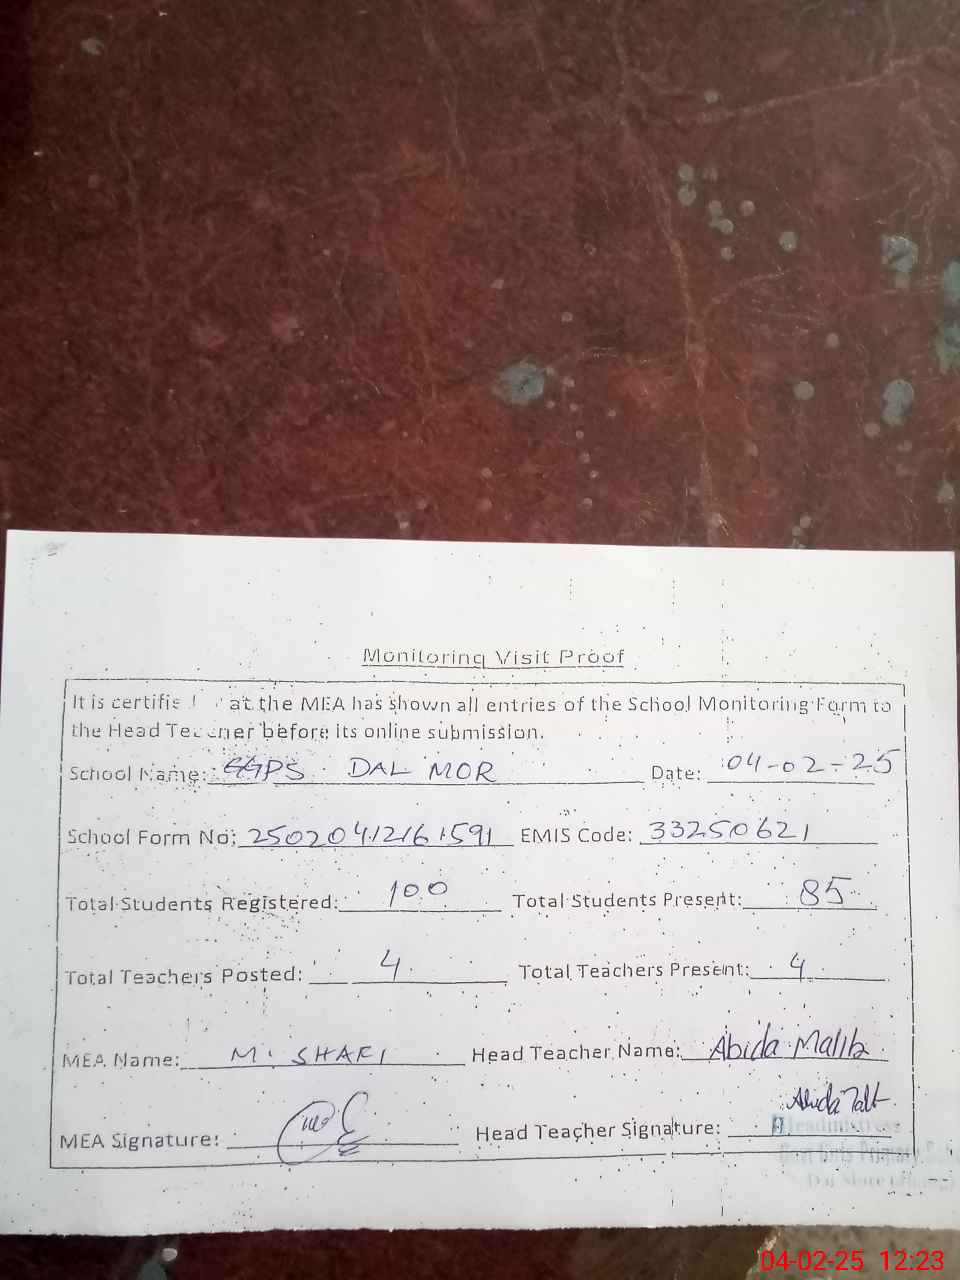 Monitoring Visit Proof
It is certifie at the MEA has shown all entries of the School Monitoring Form to
the Head Teacher before its online submission.
School Name: GGPS DAL MOR Date: 04-02-25
School Form No: 25020412161591 EMIS Code: 33250621
Total Students Registered: 100 Total Students Present: 85
Total Teachers Posted: 4 Total Teachers Present: 4
MEA Name: M. SHAFI Head Teacher Name: Abida Malik
MEA Signature: Head Teacher Signature: Abida
Headmistress
Govt Girls Primary
Dal More
04-02-25 12:23